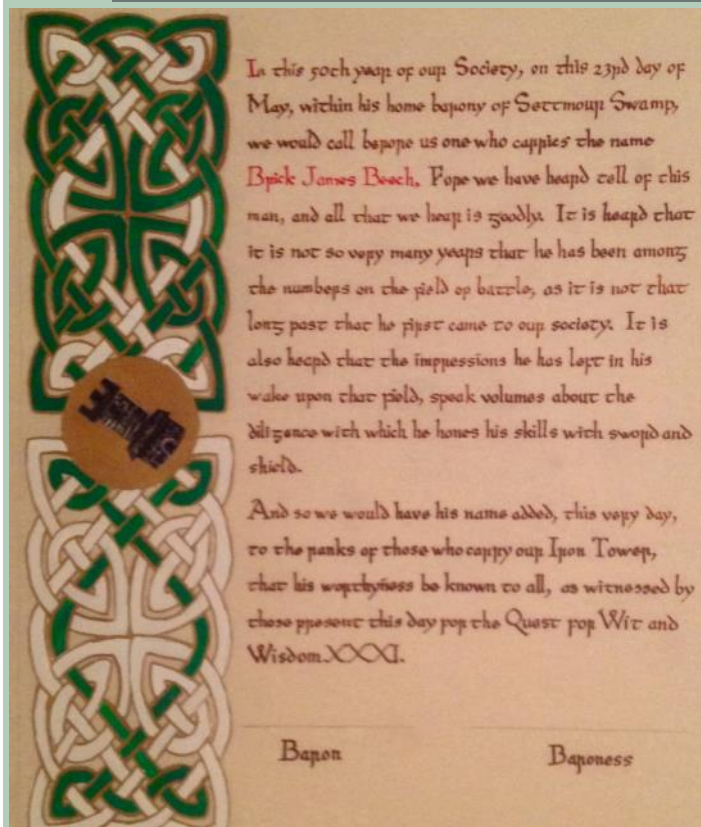 In this 50th year of our Society, on this 23rd day of
May, within his home barony of Settmour Swamp,
we would call before us one who carries the name
Brick James Beech. Fore we have heard tell of this
man, and all that we hear is goodly. It is heard that
it is not so very many years that he has been among
the numbers on the field of battle, as it is not that
long past that he first came to our society. It is
also heard that the impressions he has left in his
wake upon that field, speak volumes about the
diligence with which he hones his skills with sword and
shield.
And so we would have his name added, this very day,
to the ranks of those who carry our Iron Tower,
that his worthyness be known to all, as witnessed by
those present this day for the Quest for Wit and
Wisdom XXXI.
Baron
Baroness